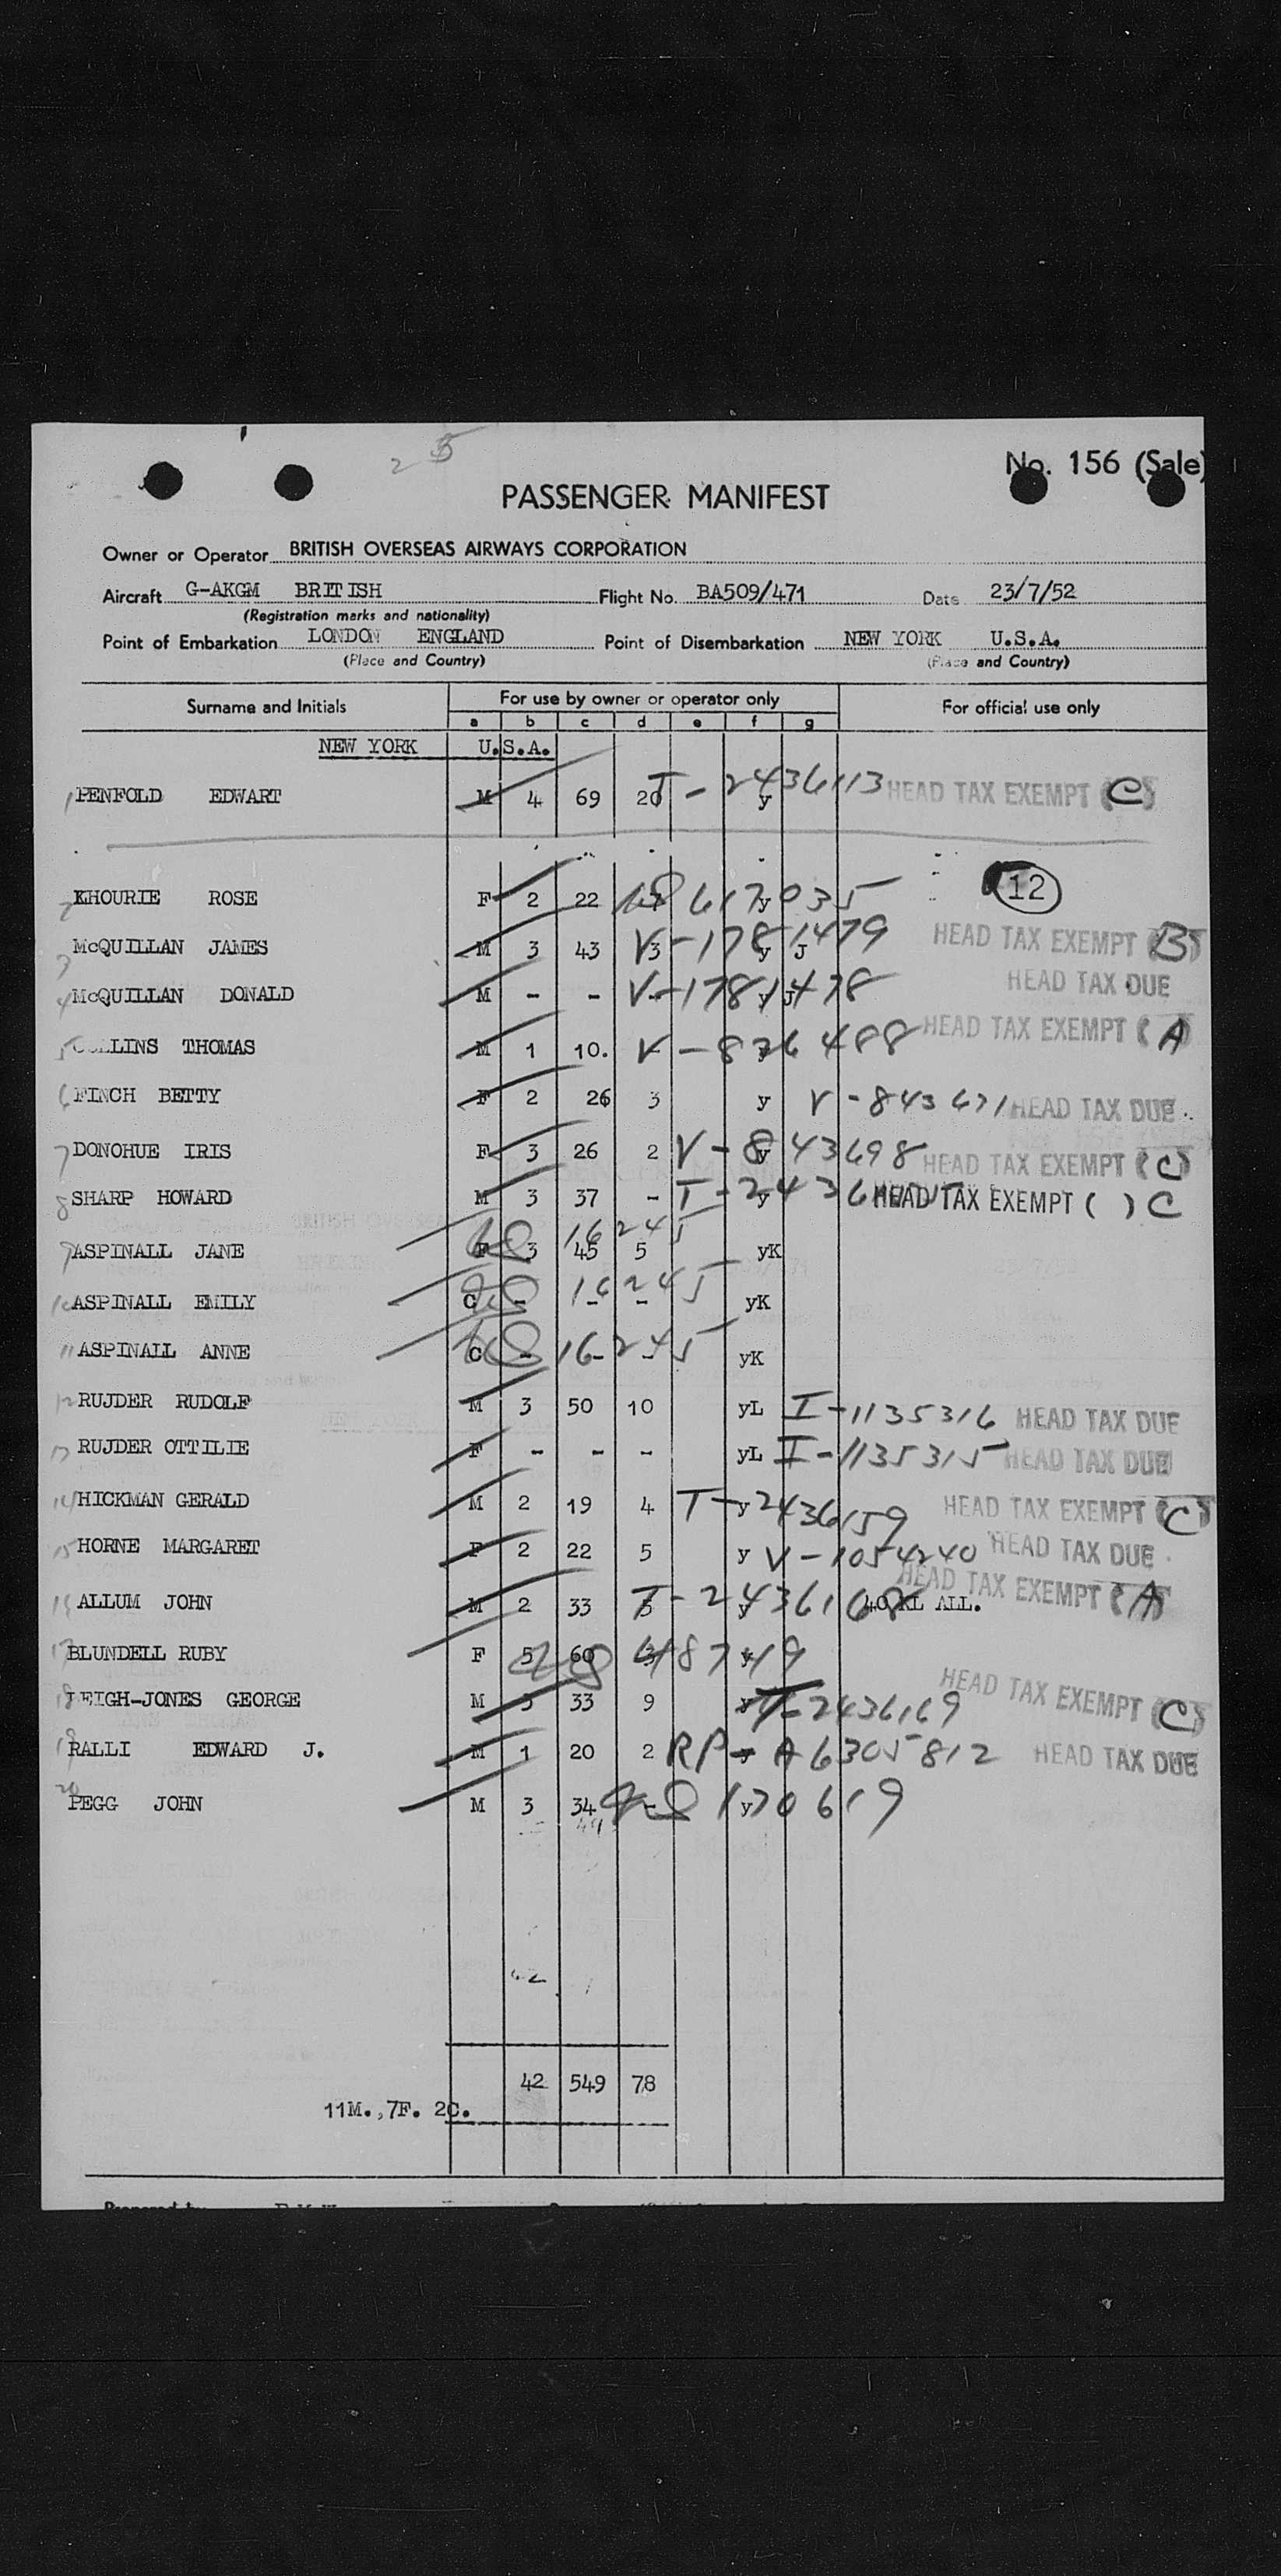 25
No. 156 (Sale)
PASSENGER MANIFEST
Owner or Operator BRITISH OVERSEAS AIRWAYS CORPORATION
Aircraft G-AKGM BRITISH Flight No. BA509/471 Date 23/7/52
(Registration marks and nationality)
Point of Embarkation LONDON ENGLAND Point of Disembarkation NEW YORK U.S.A.
(Place and Country) (Place and Country)
Surname and Initials For use by owner or operator only For official use only
a b c d e f g
NEW YORK U.S.A.
1 PENFOLD EDWART M 4 69 20 T-2436113 y HEAD TAX EXEMPT (C)
12
2 KHOURIE ROSE F 2 22 617035 y
3 McQUILLAN JAMES M 3 43 3 V-1781479 y J HEAD TAX EXEMPT (B)
4 McQUILLAN DONALD M - - - V-1781478 y J HEAD TAX DUE
5 COLLINS THOMAS M 1 10. - V-826488 HEAD TAX EXEMPT (A)
6 FINCH BETTY F 2 26 3 y V-843671 HEAD TAX DUE
7 DONOHUE IRIS F 3 26 2 V-843698 y HEAD TAX EXEMPT (C)
8 SHARP HOWARD M 3 37 - T-2436 y HEAD TAX EXEMPT ( ) C
9 ASPINALL JANE F 3 45 5 16245 yK
10 ASPINALL EMILY C - - - 16245 yK
11 ASPINALL ANNE C - - - 16245 yK
12 RUJDER RUDOLF M 3 50 10 yL I-1135316 HEAD TAX DUE
13 RUJDER OTTILIE F - - - yL I-1135315 HEAD TAX DUE
14 HICKMAN GERALD M 2 19 4 T-2436159 y HEAD TAX EXEMPT (C)
15 HORNE MARGARET F 2 22 5 y V-1054240 HEAD TAX DUE
16 ALLUM JOHN M 2 33 3 T-243616 y 40 XL ALL. HEAD TAX EXEMPT (A)
17 BLUNDELL RUBY F 5 60 3 48749
18 LEIGH-JONES GEORGE M 3 33 9 y T-2436169 HEAD TAX EXEMPT (C)
19 RALLI EDWARD J. M 1 20 2 RP-A6305812 HEAD TAX DUE
20 PEGG JOHN M 3 34 - 170619 y
42 549 78
11M.,7F. 2C.